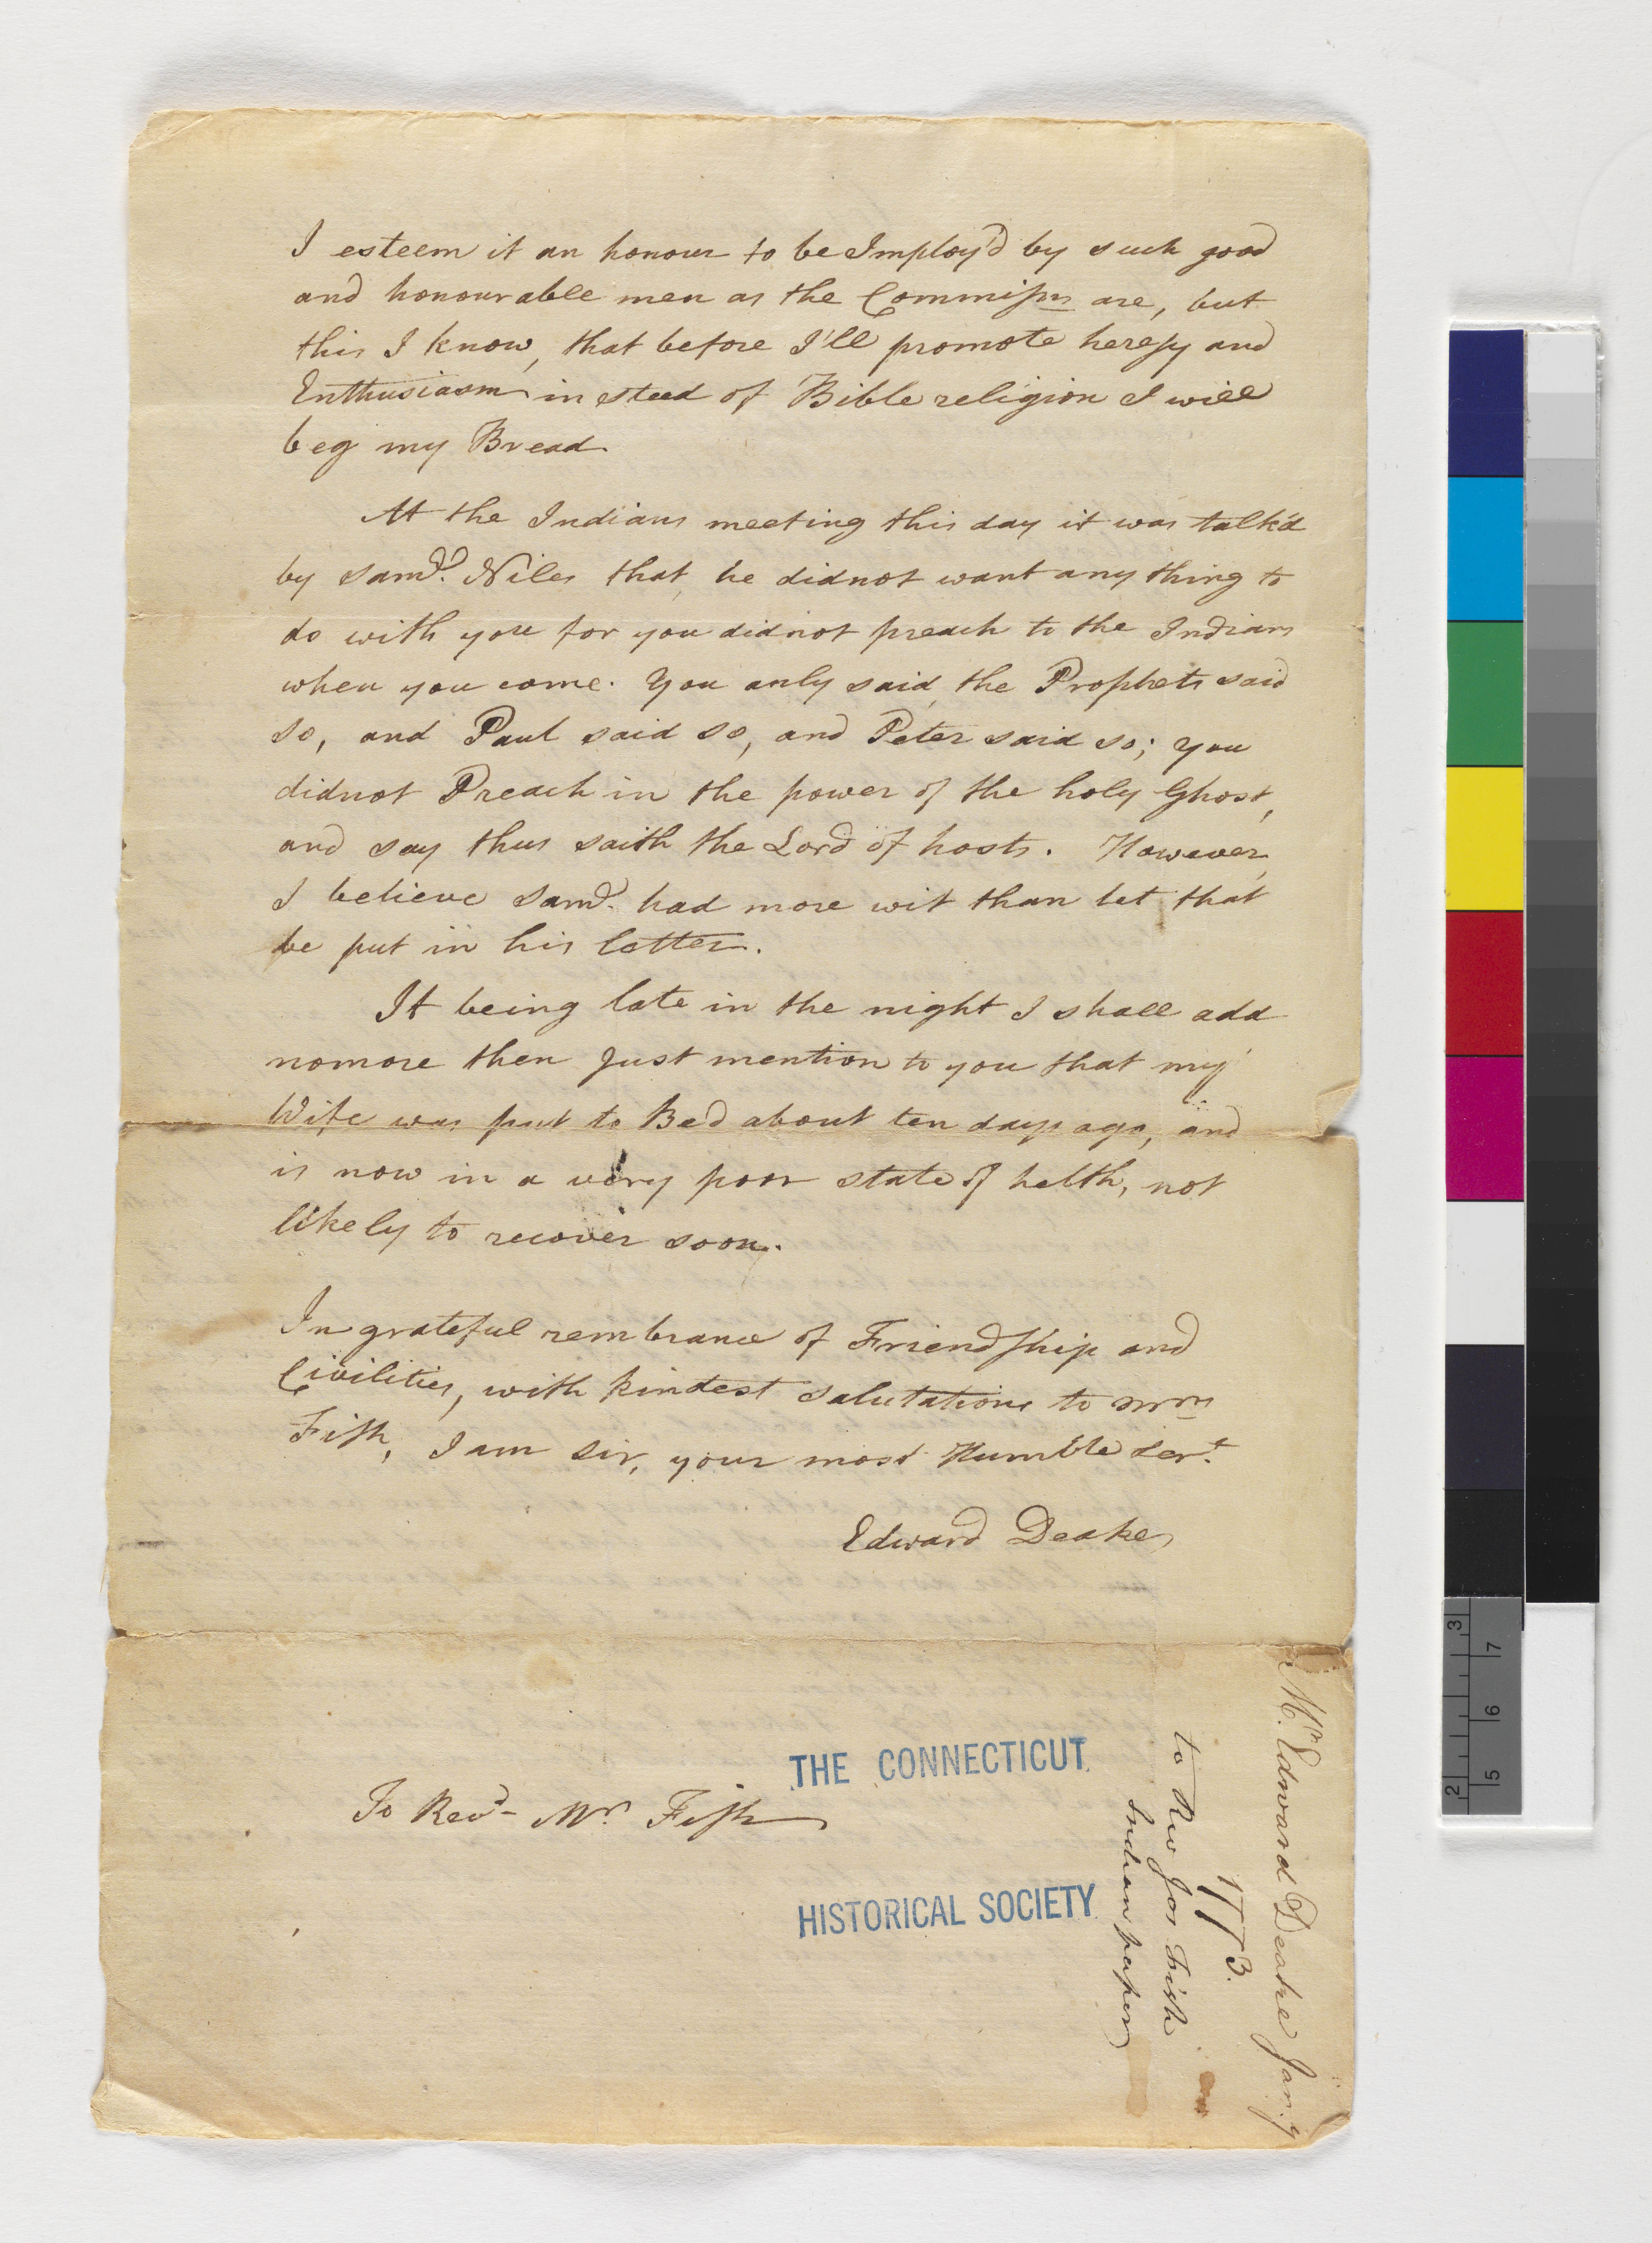 I esteem it an honour to be Imploy'd by such good
and honourable men as the Commissrs are, but
this I know, that before I'll promote heresy and
Enthusiasm in steed of Bible religion I will
beg my Bread.
At the Indians meeting this day it was talk'd
by Saml. Niles that, he didnot want any thing to
do with you for you didnot preach to the Indians
when you come. You only said, the Prophets said
so, and Paul said so, and Peter said so; you
didnot Preach in the power of the holy Ghost,
and say thus saith the Lord of hosts. However,
I believe Saml. had more wit than let that
be put in his letter.
It being late in the night I shall add
nomore then Just mention to you that my
Wife was put to Bed about ten days ago, and
is now in a very poor state of helth, not
likely to recover soon.
In grateful rembrance of Friendship and
Civilities, with kindest salutations to Mrs
Fish, I am Sir, your most Humble Sert.
Edward Deake
To Revd. Mr. Fish
THE CONNECTICUT
HISTORICAL SOCIETY
Mr. Edward Deake Jan.y
1773.
to Rev Jos Fish
Indian papers
3
2
7
6
5